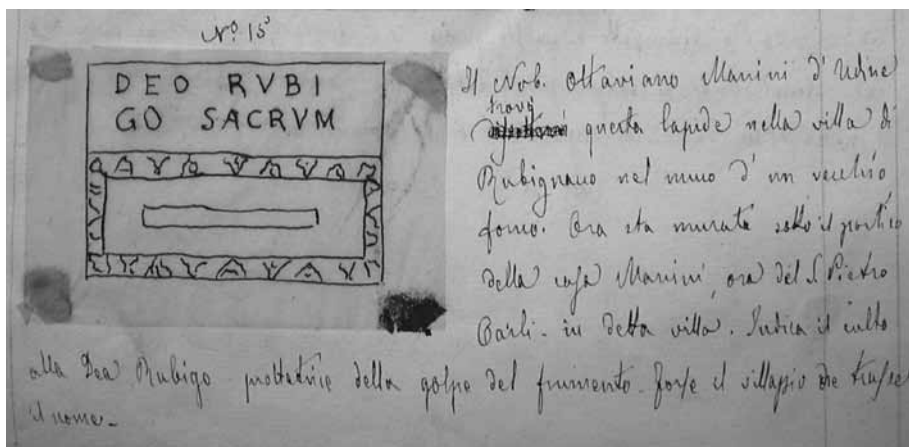 Nº 15
DEO RVBI
GO SACRVM
Il Nob. Ottaviano Manini d' Udine
trovò
questa lapide nella villa di
Rubignano nel muro d' un vecchio
forno. Ora sta murata sotto il portico
della casa Manini, ora del S. Pietro
Carli - in detta villa. Indica il culto
alla Dea Rubigo protettrice della golpe del frumento. Forse il villaggio ne trasse
il nome -